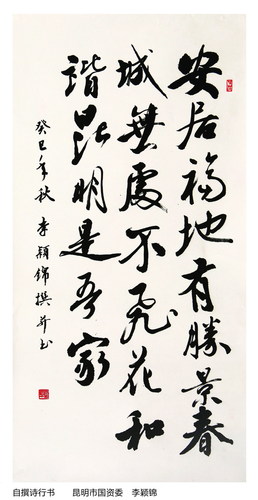 安居福地有勝景春
城無處不飛花和
諧昆明是吾家
癸巳年秋 李穎錦撰并书
自撰诗行书 昆明市国资委 李颖锦